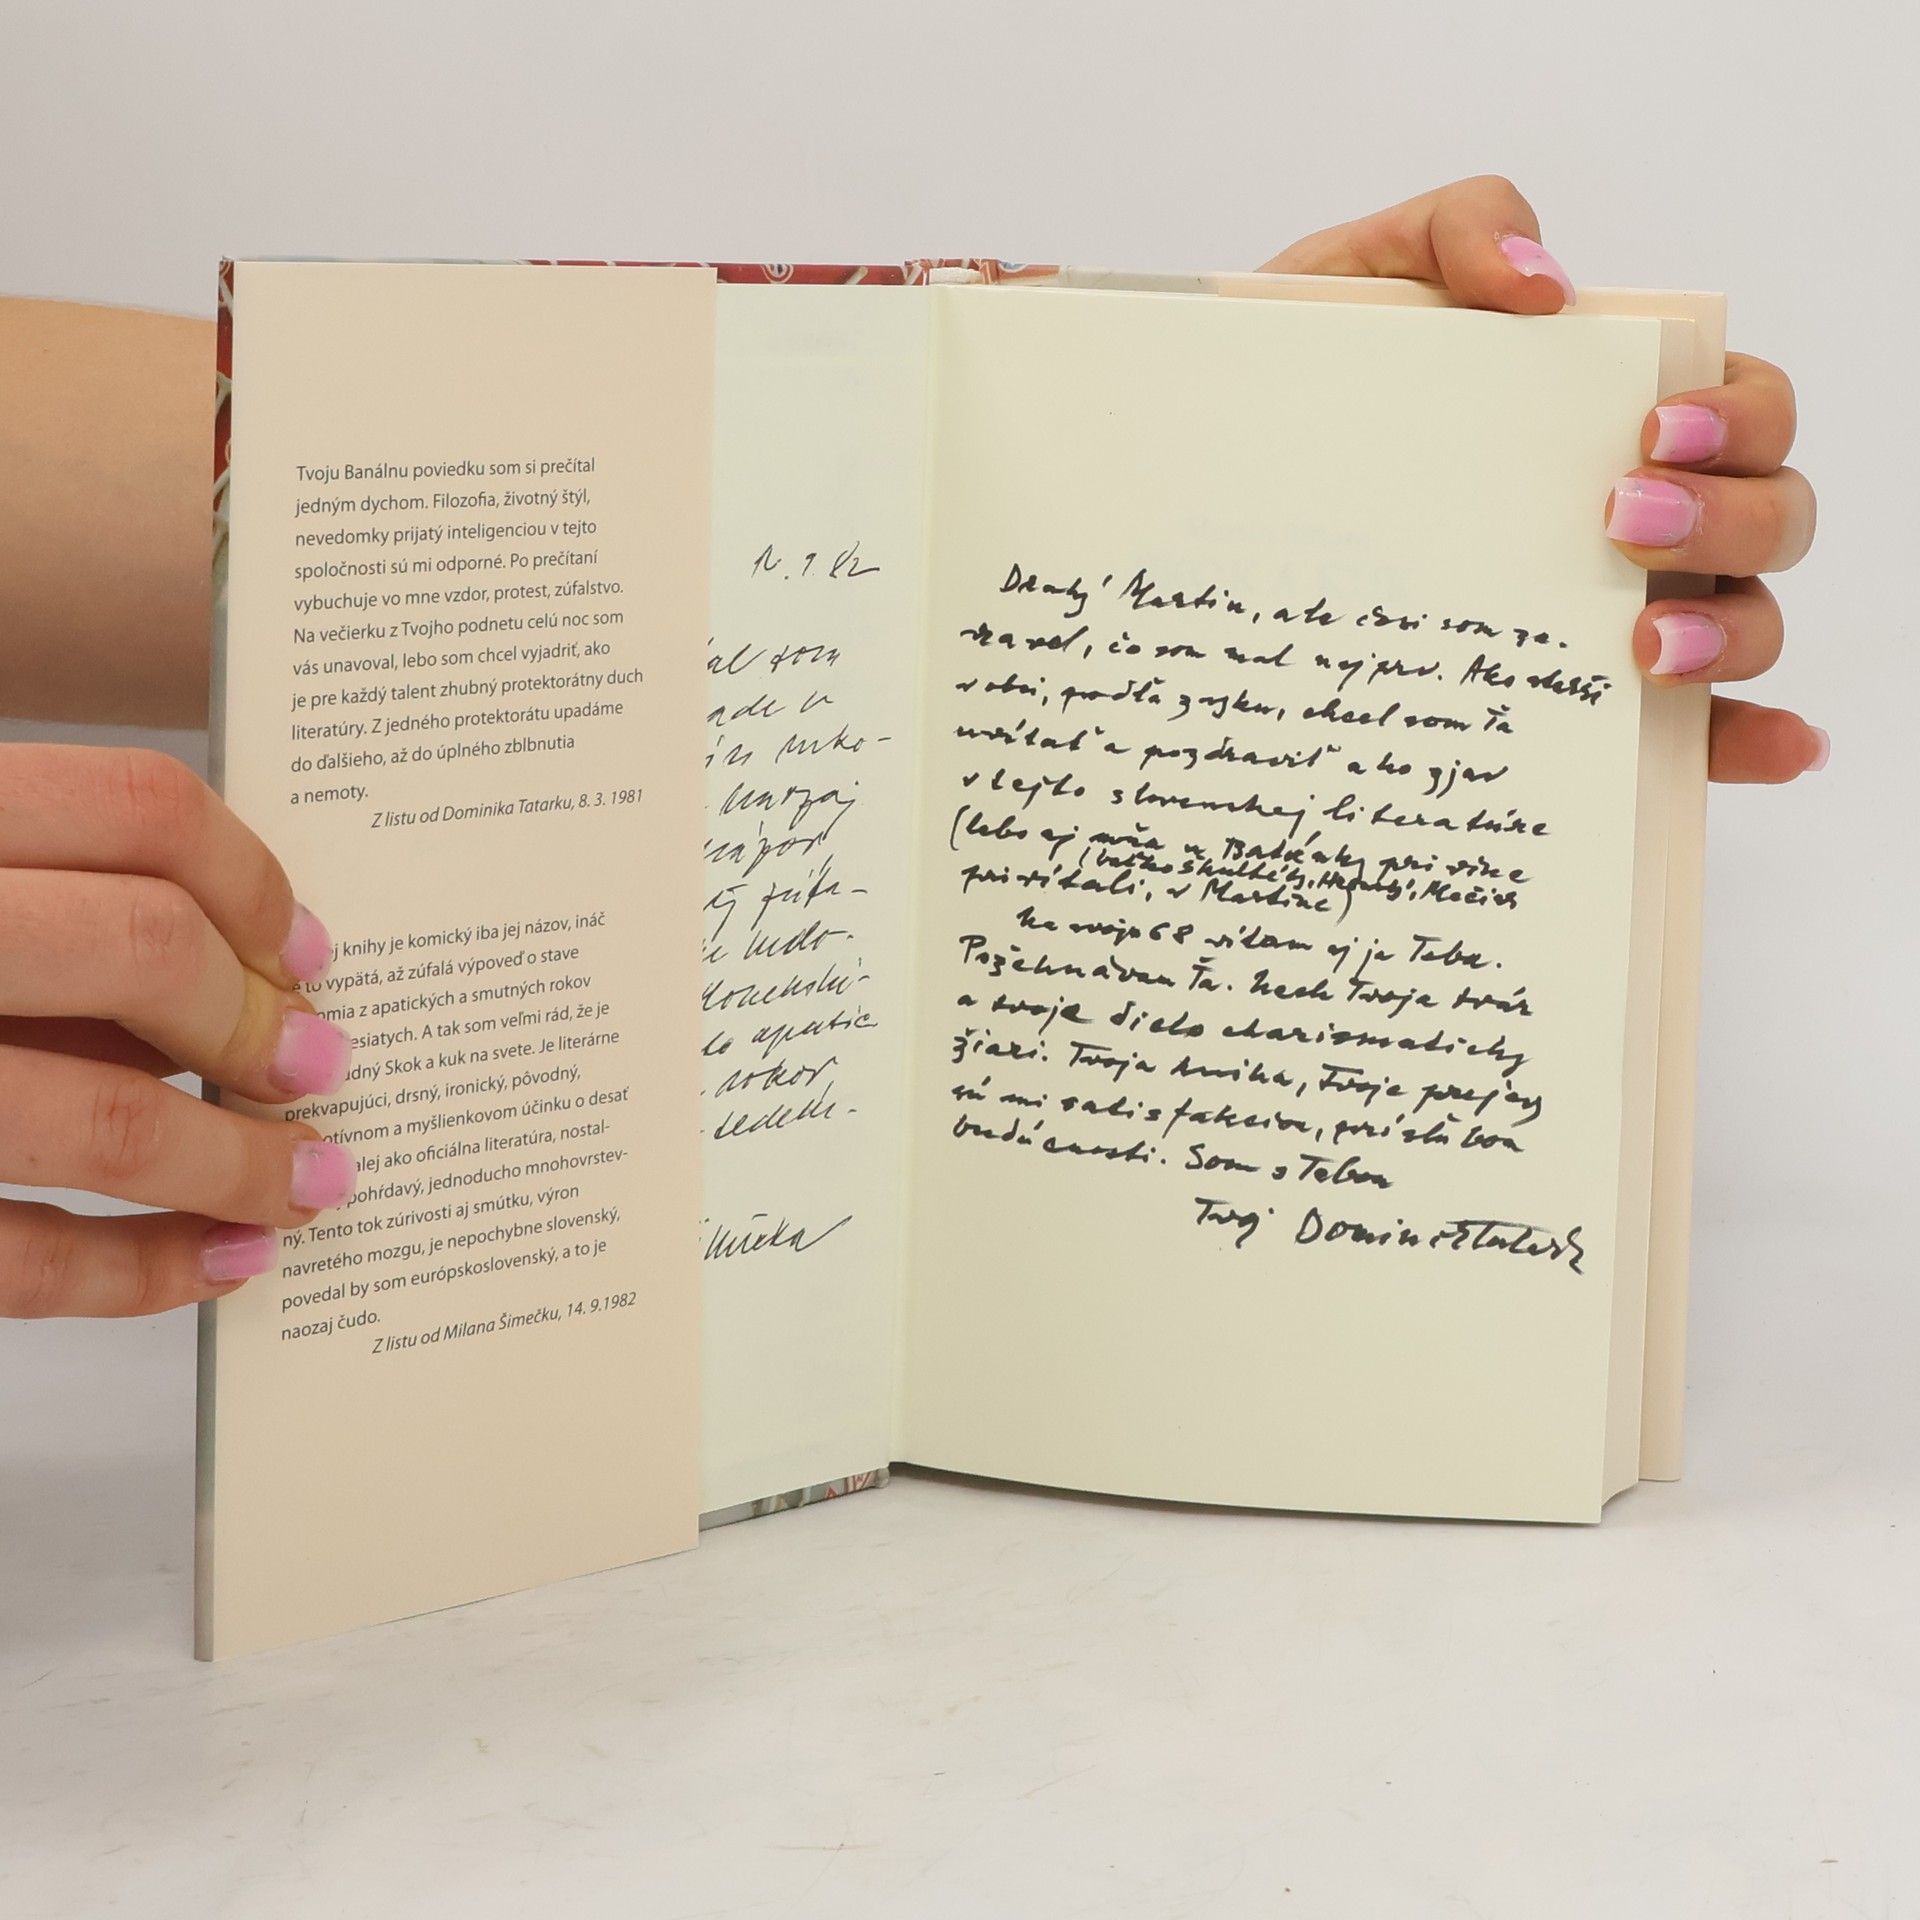 Tvoju Banálnu poviedku som si prečítal
jedným dychom. Filozofia, životný štýl,
nevedomky prijatý inteligenciou v tejto
spoločnosti sú mi odporné. Po prečítaní
vybuchuje vo mne vzdor, protest, zúfalstvo.
Na večierku z Tvojho podnetu celú noc som
vás unavoval, lebo som chcel vyjadriť, ako
je pre každý talent zhubný protektorátny duch
literatúry. Z jedného protektorátu upadáme
do ďalšieho, až do úplného zblbnutia
a nemoty.
Z listu od Dominika Tatarku, 8. 3. 1981
knihy je komický iba jej názov, ináč
to vypätá, až zúfalá výpoveď o stave
z apatických a smutných rokov
A tak som veľmi rád, že je
Skok a kuk na svete. Je literárne
prekvapujúci, drsný, ironický, pôvodný,
a myšlienkovom účinku o desať
ako oficiálna literatúra, nostal-
pohŕdavý, jednoducho mnohovrstev-
ný. Tento tok zúrivosti aj smútku, výron
navretého mozgu, je nepochybne slovenský,
povedal by som európskoslovenský, a to je
naozaj čudo.
Z listu od Milana Šimečku, 14. 9.1982
som
ruko-
naozaj
zúfa-
apatic
rokov
sedem-
Drahý Martin, ale som za-
čo som mal najprv. Ako starší
v obci, podľa zvyku, chcel som Ťa
uvítať a pozdraviť ako zjav
v tejto slovenskej literatúre
(lebo aj mňa u pri víne
privítali, v Martine)
Na svoju 68 vítam aj ja Teba.
Požehnávam Ťa. Nech Tvoja tvár
a tvoje dielo charismaticky
žiari. Tvoja kniha, Tvoje prejavy
sú mi satisfakciou, prísľubom
budúcnosti. Som s Tebou
Tvoj Dominik Tatarka